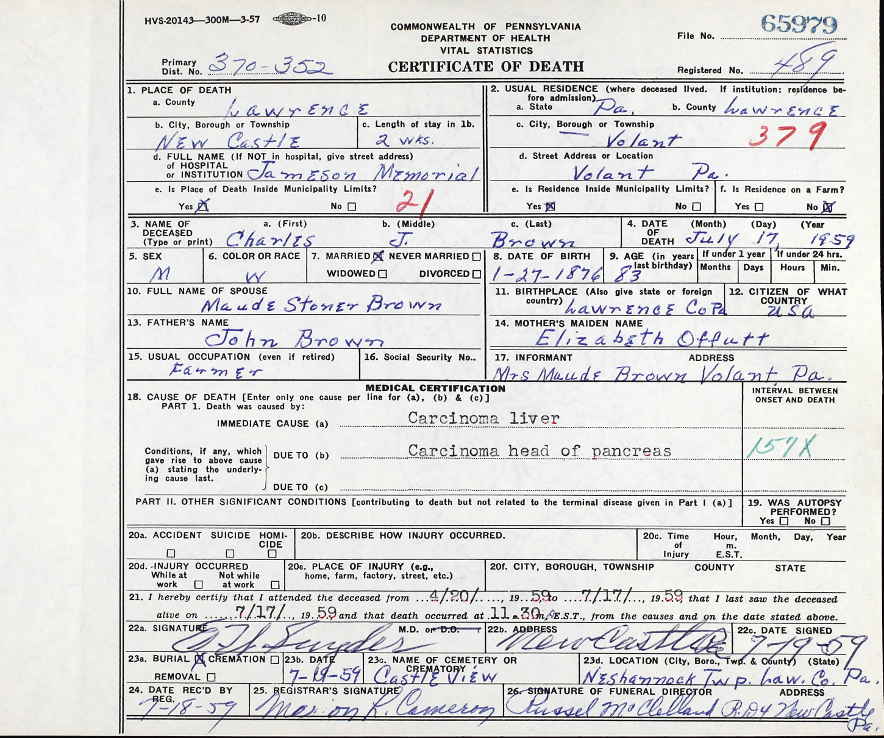 HVS-20143—300M—3-57 -10
COMMONWEALTH OF PENNSYLVANIA
DEPARTMENT OF HEALTH
VITAL STATISTICS
CERTIFICATE OF DEATH
File No. 65979
Primary Dist. No. 370-352
Registered No. 489
1. PLACE OF DEATH
a. County Lawrence
2. USUAL RESIDENCE (where deceased lived. If institution: residence before admission)
a. State Pa. b. County Lawrence
b. City, Borough or Township New Castle
c. Length of stay in 1b. 2 wks.
c. City, Borough or Township Volant
379
d. FULL NAME (If NOT in hospital, give street address) OF HOSPITAL OR INSTITUTION Jameson Memorial
d. Street Address or Location Volant Pa.
e. Is Place of Death Inside Municipality Limits?
Yes X No
21
e. Is Residence Inside Municipality Limits? Yes X No
f. Is Residence on a Farm? Yes No X
3. NAME OF DECEASED (Type or print) a. (First) Charles b. (Middle) J. c. (Last) Brown
4. DATE OF DEATH (Month) (Day) (Year July 17, 1959
5. SEX M
6. COLOR OR RACE W
7. MARRIED X NEVER MARRIED WIDOWED DIVORCED
8. DATE OF BIRTH 1-27-1876
9. AGE (in years last birthday) 83 If under 1 year Months Days If under 24 hrs. Hours Min.
10. FULL NAME OF SPOUSE Maude Stoner Brown
11. BIRTHPLACE (Also give state or foreign country) Lawrence Co Pa
12. CITIZEN OF WHAT COUNTRY USA
13. FATHER'S NAME John Brown
14. MOTHER'S MAIDEN NAME Elizabeth Offutt
15. USUAL OCCUPATION (even if retired) Farmer
16. Social Security No..
17. INFORMANT ADDRESS Mrs Maude Brown Volant, Pa.
MEDICAL CERTIFICATION
18. CAUSE OF DEATH [Enter only one cause per line for (a), (b) & (c)]
INTERVAL BETWEEN ONSET AND DEATH
PART 1. Death was caused by:
IMMEDIATE CAUSE (a) Carcinoma liver
Conditions, if any, which gave rise to above cause (a) stating the underlying cause last.
DUE TO (b) Carcinoma head of pancreas
157X
DUE TO (c)
PART II. OTHER SIGNIFICANT CONDITIONS [contributing to death but not related to the terminal disease given in Part I (a)]
19. WAS AUTOPSY PERFORMED? Yes No
20a. ACCIDENT SUICIDE HOMICIDE
20b. DESCRIBE HOW INJURY OCCURRED.
20c. Time of Injury Hour, m. E.S.T. Month, Day, Year
20d. INJURY OCCURRED While at work Not while at work
20e. PLACE OF INJURY (e.g., home, farm, factory, street, etc.)
20f. CITY, BOROUGH, TOWNSHIP COUNTY STATE
21. I hereby certify that I attended the deceased from 4/20/, 19 59 to 7/17/, 19 59 that I last saw the deceased
alive on 7/17/ 19 59 and that death occurred at 11.30 m, E.S.T., from the causes and on the date stated above.
22a. SIGNATURE Snyder M.D. or D.O.
22b. ADDRESS New Castle Pa
22c. DATE SIGNED 7-19-59
23a. BURIAL X CREMATION REMOVAL
23b. DATE 7-19-59
23c. NAME OF CEMETERY OR CREMATORY Castle View
23d. LOCATION (City, Boro., Twp. & County) (State) Neshannock Twp. Law. Co. Pa.
24. DATE REC'D BY REG. 7-18-59
25. REGISTRAR'S SIGNATURE Marion L. Cameron
26. SIGNATURE OF FUNERAL DIRECTOR ADDRESS Russel McClelland R.D4 New Castle Pa.